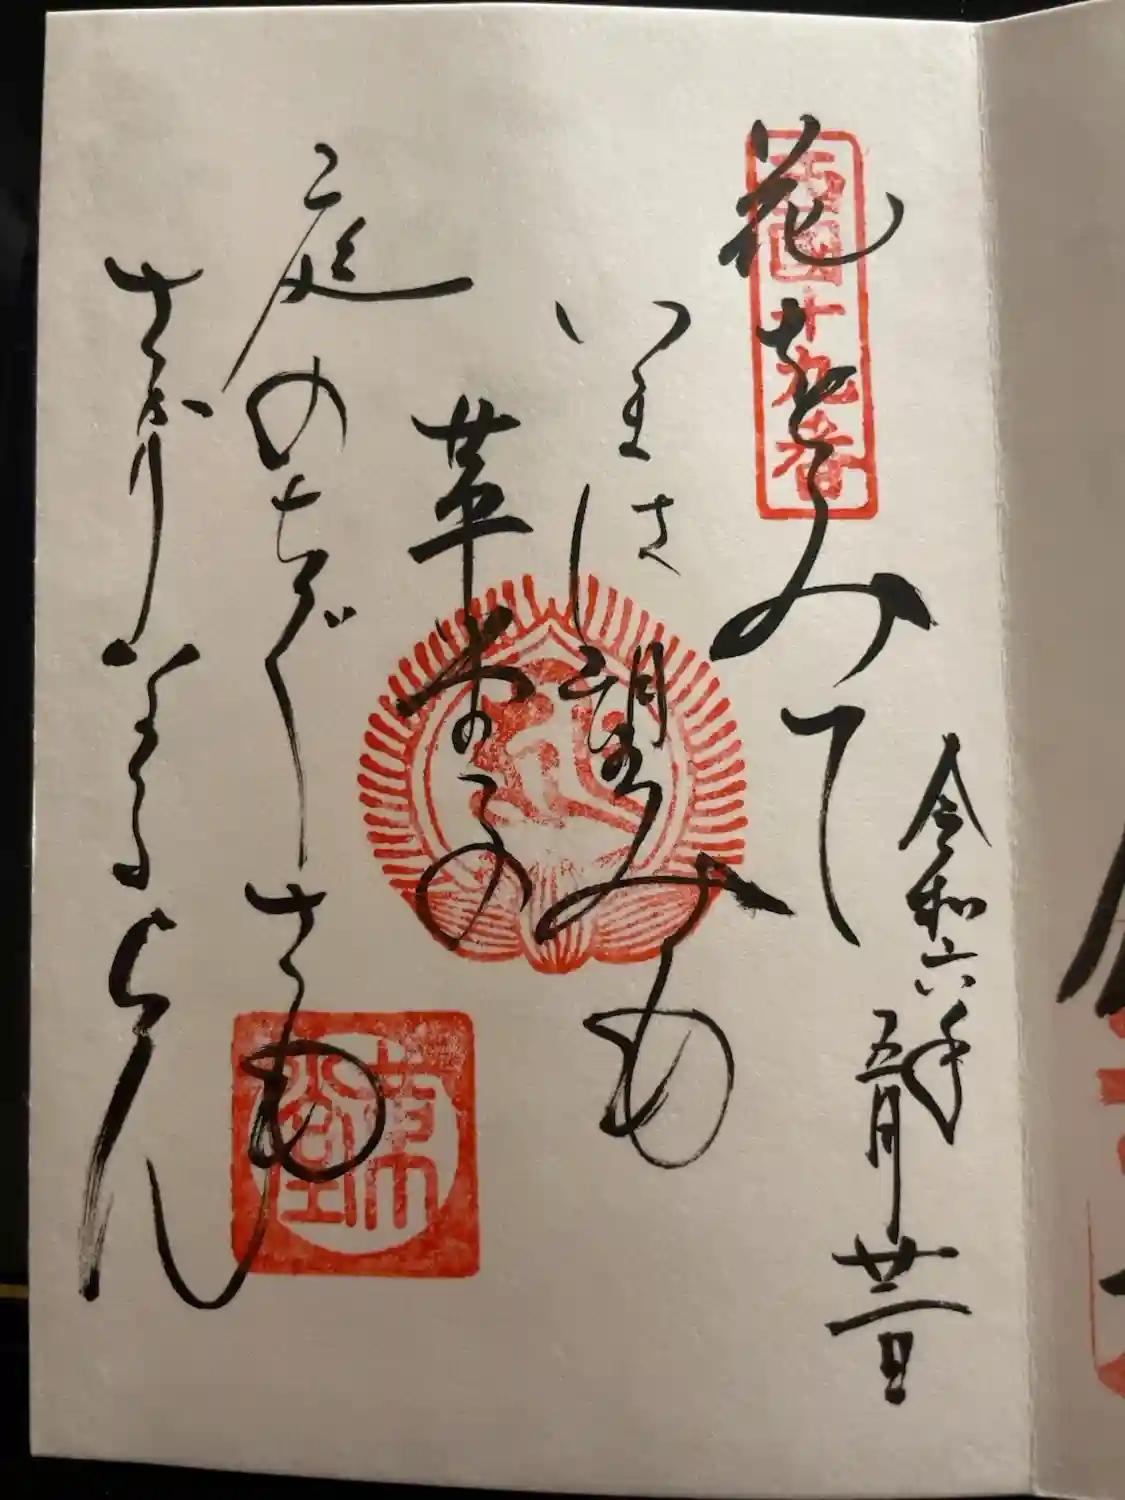 西国十九番
令和六年
五月廿二日
花をみて
いまは望みも
革堂の
庭のちぐさも
さかりなるらん
革堂